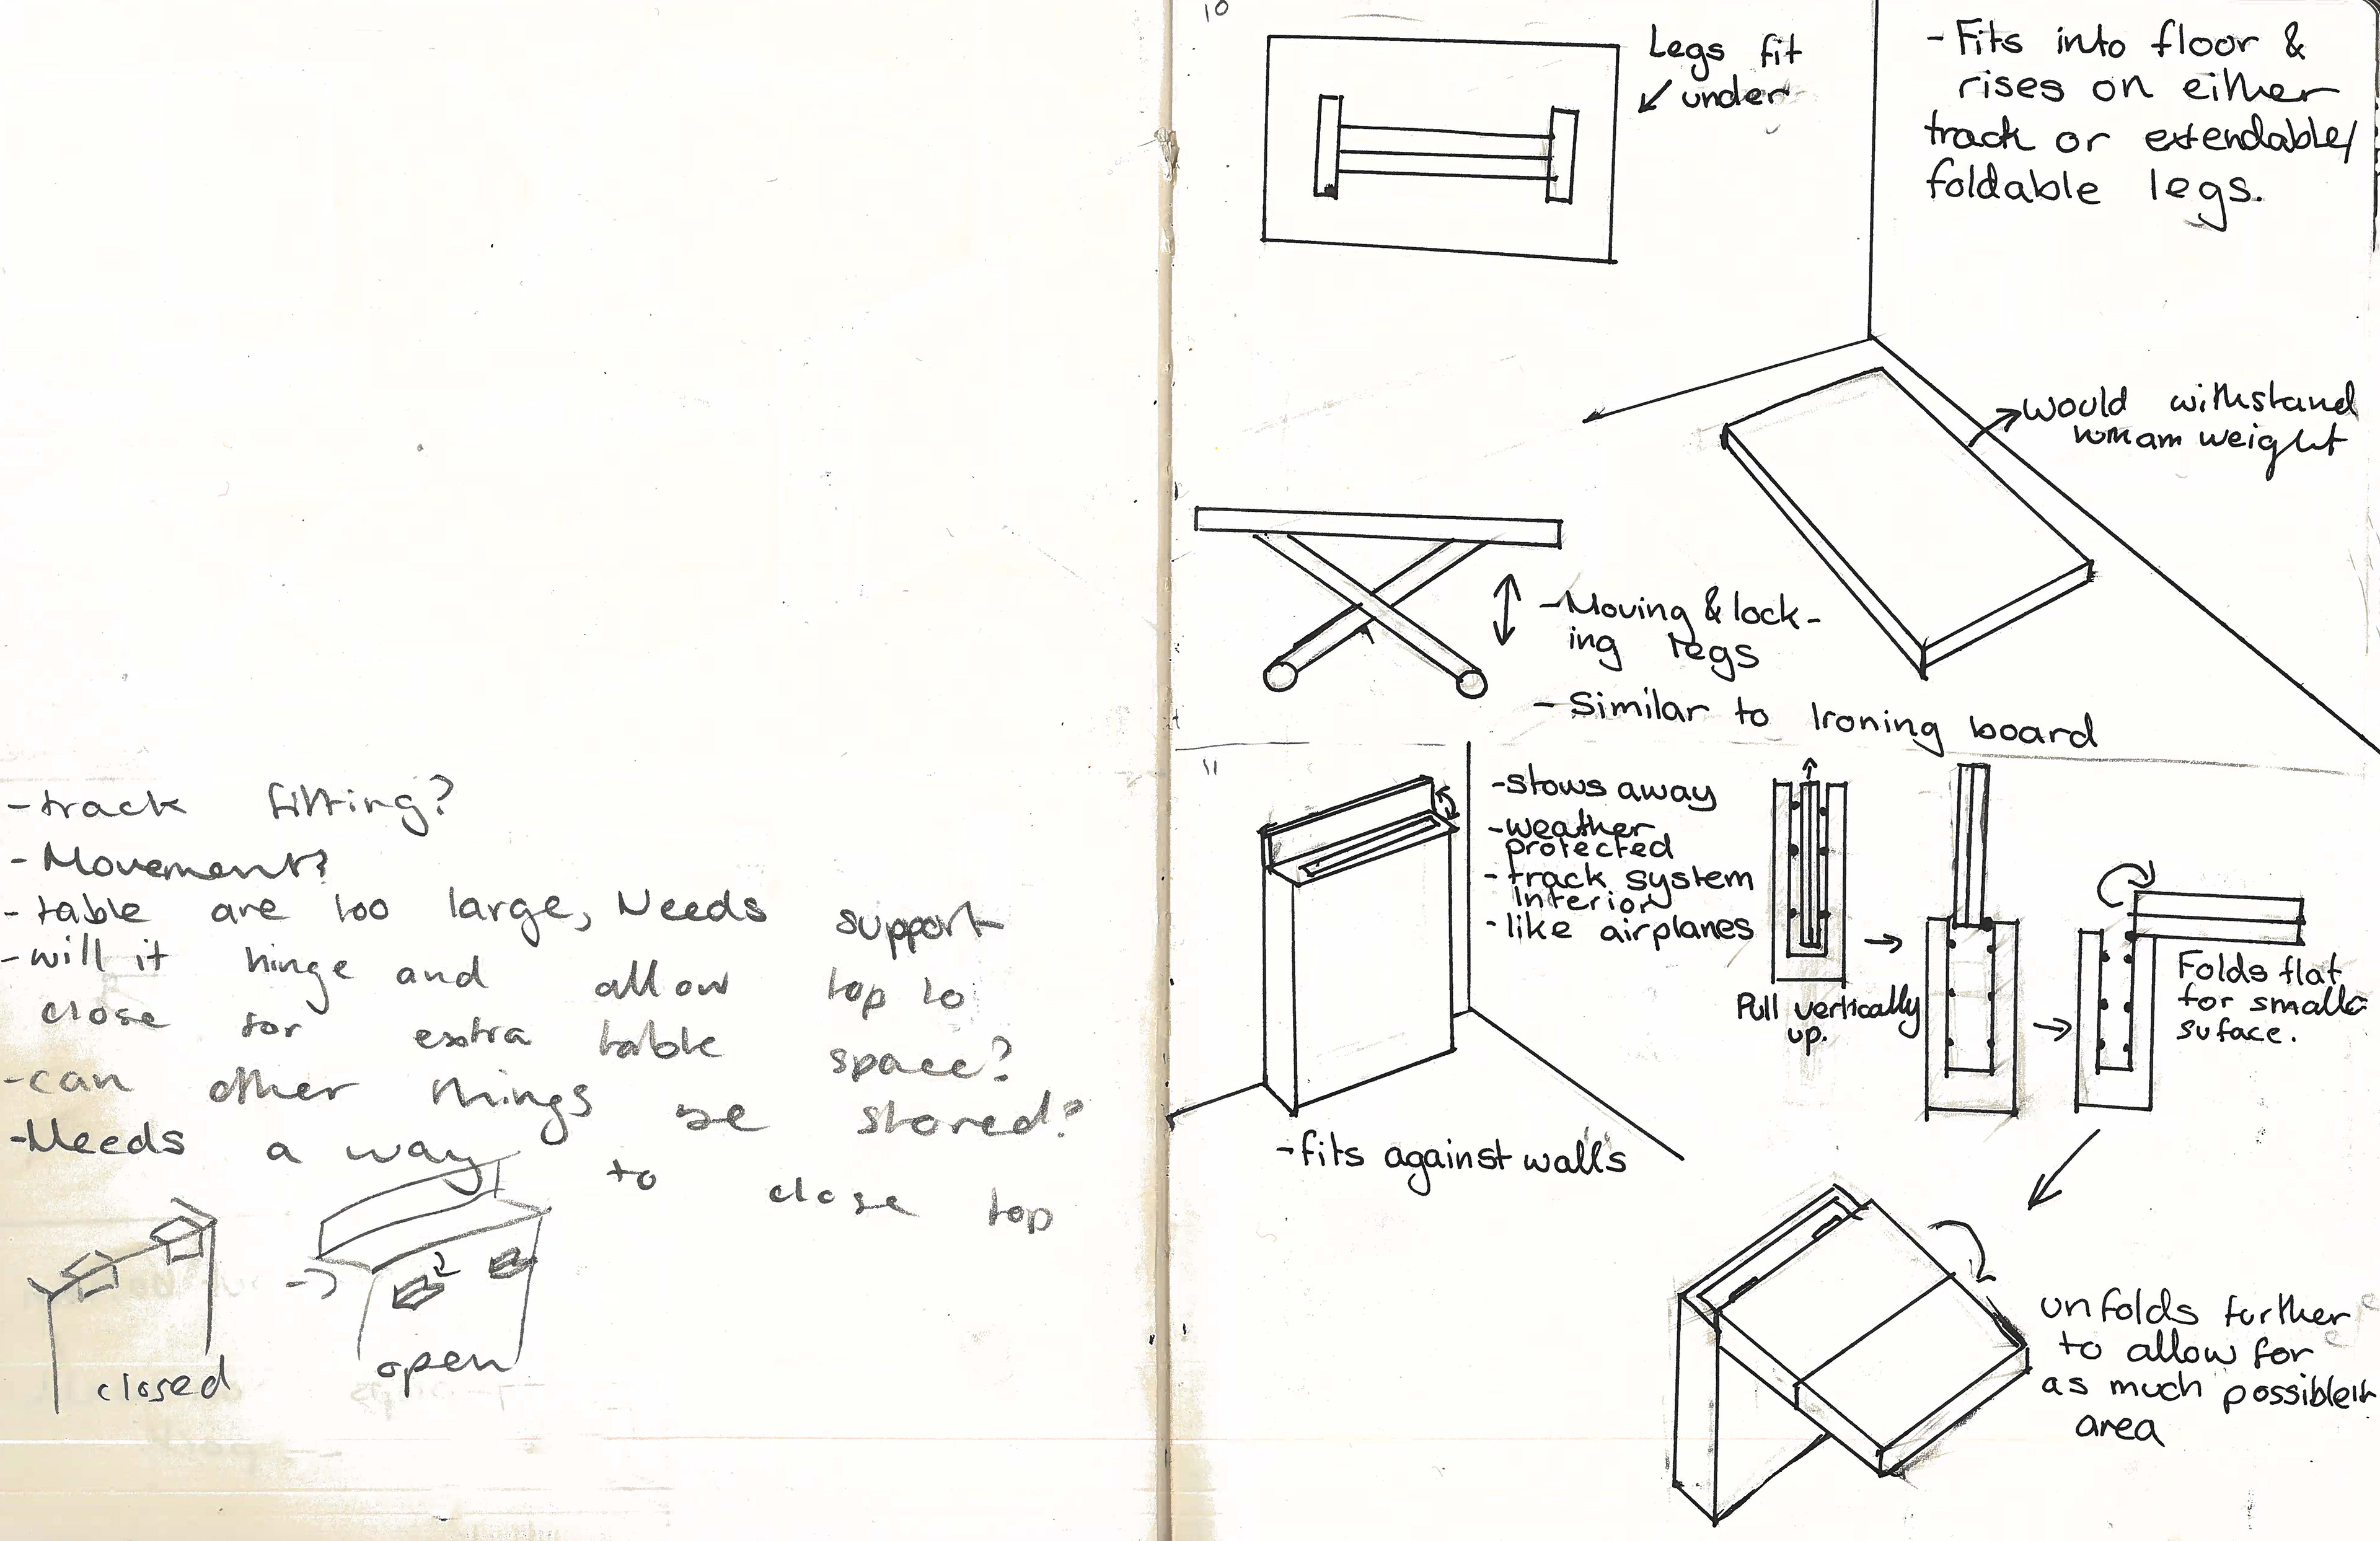 - track fitting?
- Movement?
- table are too large, Needs support
- will it hinge and allow top to
close for extra table space?
- can other things be stored?
- Needs a way to close top
closed
->
open
10
Legs fit
under
- Fits into floor &
rises on either
track or extendable/
foldable legs.
would withstand
weight
- Moving & lock-
ing legs
- Similar to Ironing board
11
- stows away
- weather
protected
- track system
Interior
- like airplanes
Pull vertically
up.
Folds flat
for smalle
suface.
- fits against walls
unfolds further
to allow for
as much possible
area